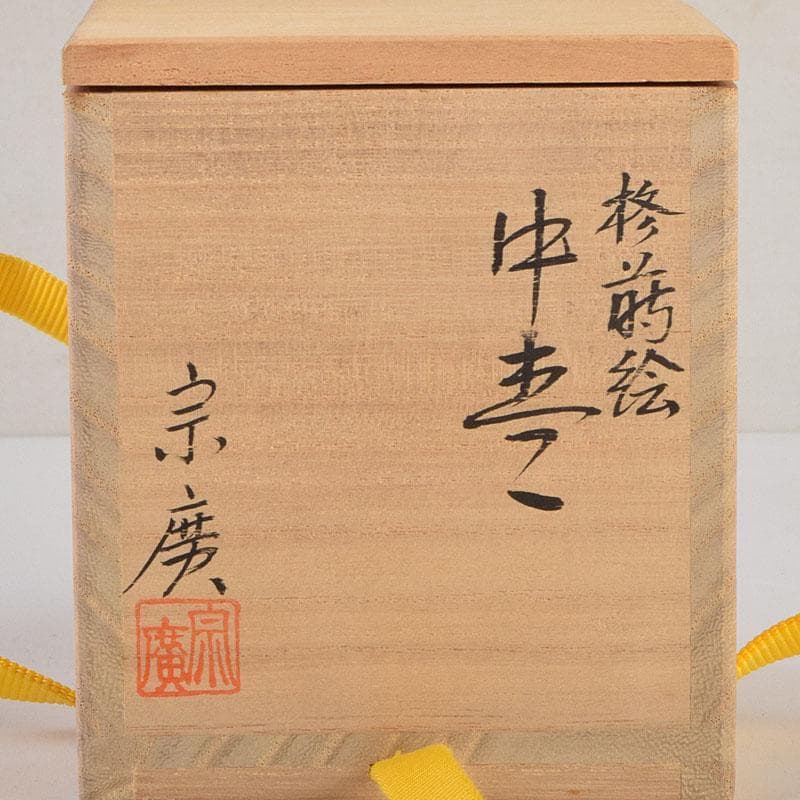 柊蒔絵
中棗
宗廣
宗廣